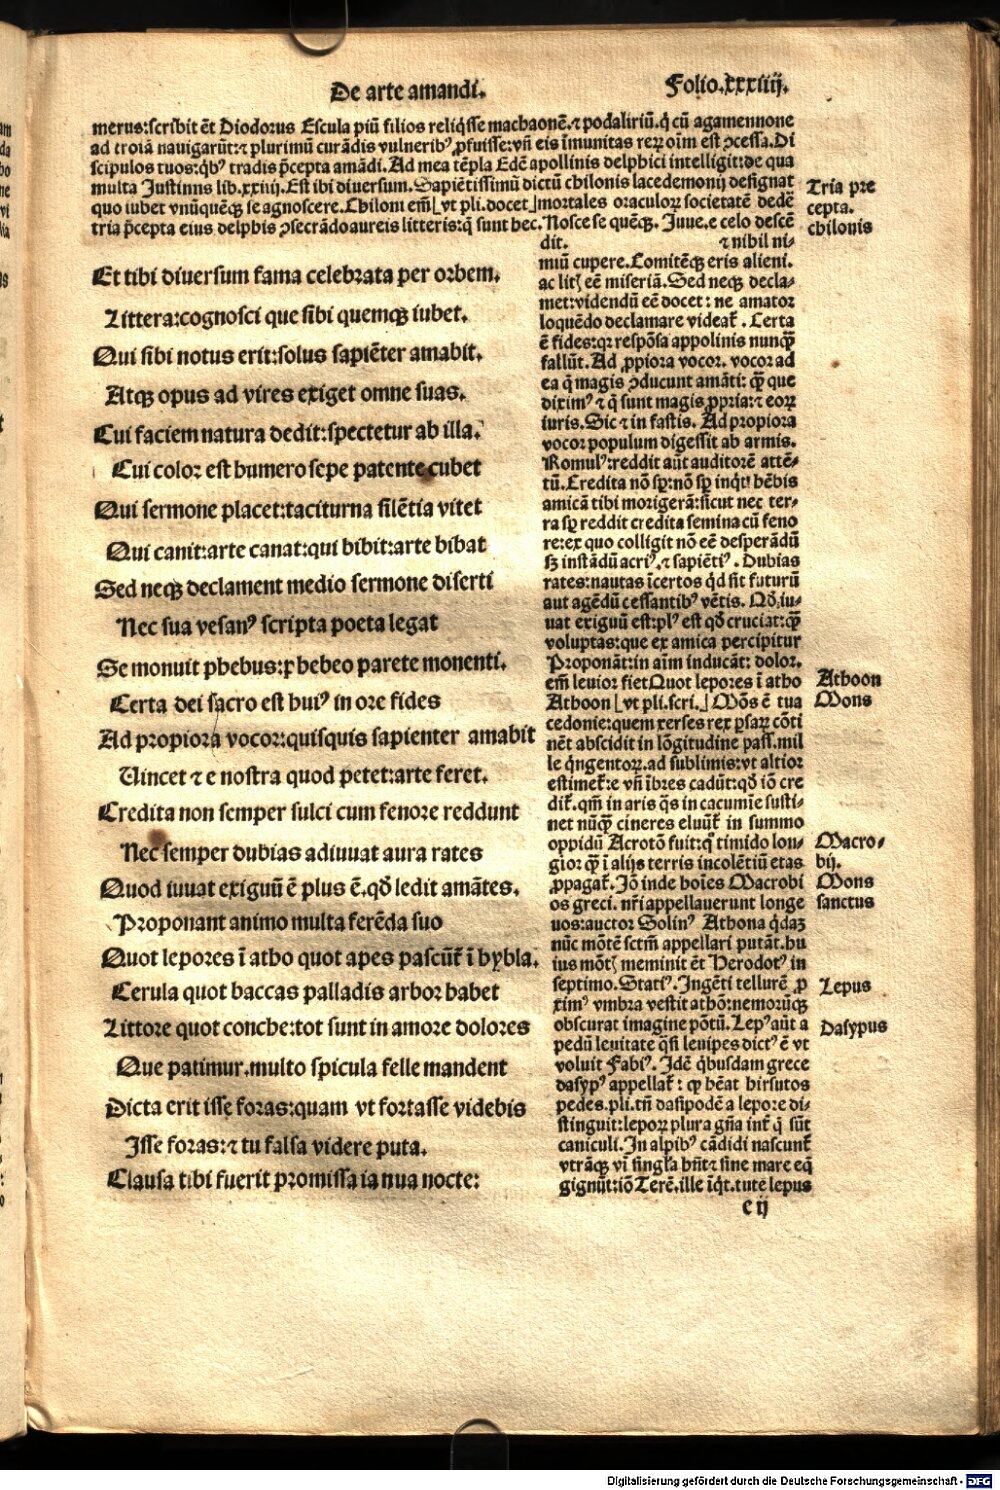 De arte amandi.
Folio.xxxiiij.
merus:scribit ēt Diodorus Escula piū filios reliq̄sse machaonē.⁊ podaliriū.q̄ cū agamennone
ad troiā nauigarūt:⁊ plurimū curādis vulneribꝰ ꝓfuisse:vn̄ eis īmunitas reꝝ oīm est ꝯcessa.Di
scipulos tuos:qb̄ꝰ tradis p̄cepta amādi. Ad mea tēpla Edē apollinis delphici intelligit:de qua
multa Justinns lib.xxiiij. Est ibi diuersum. Sapiētissimū dictū chilonis lacedemonij designat
quo iubet vnūquēqꝫ se agnoscere. Chiloni em̄ ⌊vt pli.docet⌋ mortales oraculoꝝ societatē dedē
tria p̄cepta eius delphis ꝯsecrādo aureis litteris:q̄ sunt hec. Nosce se quēqꝫ. Juue.e celo descē
Tria pre
cepta.
chilonis
dit. ⁊ nihil ni-
miū cupere. Comitēqꝫ eris alieni.
ac litꝭ eē miseriā. Sed neqꝫ decla-
met:videndū eē docet: ne amator
loquēdo declamare videat᷑. Certa
ē fides:qꝛ respōsa appolinis nunqꝫ̄
fallūt. Ad ꝓpiora vocor. vocor ad
ea q̄ magis ꝯducunt amāti: qꝫ̄ que
diximꝰ ⁊ q̄ sunt magis ꝓpria:⁊ eoꝝ
iuris. Sic ⁊ in fastis. Ad propiora
vocor populum digessit ab armis.
Romulꝰ:reddit aūt auditorē attē-
tū. Credita nō sꝑ:nō sꝑ inq̄t hēbis
amicā tibi morigerā:sicut nec ter-
ra sꝑ reddit credita semina cū feno
re:ex quo colligit nō eē desperādū
sꝫ instādū acriꝰ.⁊ sapiētiꝰ. Dubias
rates:nautas īcertos qd̄ sit futurū
aut agēdū cessantibꝰ vētis. Qd̄ iu-
uat exiguū est:plꝰ est qd̄ cruciat:qꝫ̄
voluptas:que ex amica percipitur
Proponāt:in aīm inducāt: dolor.
em̄ leuior fiet Quot lepores ī atho
Athoon ⌊vt pli.scri.⌋ Mōs ē tua
cedonie:quem xerses rex ꝑsaꝝ cōti
nēt abscidit in lōgitudine pass.mil
le q̄ngentoꝝ.ad sublimis:vt altior
estimet᷑:e vn̄ ībres cadūt:qd̄ iō cre
dit᷑.qm̄ in aris q̄s in cacumīe susti-
net nūqꝫ̄ cineres eluūt᷑ in summo
oppidū Acrotō fuit:q̄ timido lon-
gior qꝫ̄ ī alijs terris incolētiū etas
ꝓpagat᷑. Jō inde hoīes Macrobi
os greci. nr̄i appellauerunt longe
uos:auctor Solinꝰ Athona q̄daꝫ
nūc mōtē sctm̄ appellari putāt.hu
ius mōtꝭ meminit ēt Herodotꝰ in
septimo. Statiꝰ. Ingēti tellurē ꝓ
ximꝰ vmbra vestit athō:nemorūqꝫ
obscurat imagine pōtū. Lepꝰ aūt a
pedū leuitate q̄si leuipes dictꝰ ē vt
voluit Fabiꝰ. Idē q̄busdam grece
dasypꝰ appellat᷑: qꝫ hēat hirsutos
pedes.pli.tn̄ dasipodē a lepore di-
stinguit:lepoꝝ plura gn̄a int᷑ q̄ sūt
caniculi. In alpibꝰ cādidi nascunt᷑
vtrāqꝫ vī singla hn̄t:⁊ sine mare eq̄
gignūt:iō Terē.ille īq̄t.tute lepus
c ij
Et tibi diuersum fama celebrata per orbem.
Littera:cognosci que sibi quemqꝫ iubet.
Qui sibi notus erit:solus sapiēter amabit.
Atqꝫ opus ad vires exiget omne suas.
Cui faciem natura dedit:spectetur ab illa.
Cui color est humero sepe patente cubet
Qui sermone placet:taciturna silētia vitet
Qui canit:arte canat:qui bibit:arte bibat
Sed neqꝫ declament medio sermone diserti
Nec sua vesanꝰ scripta poeta legat
Se monuit phebus:phebeo parete monenti.
Certa dei sacro est huiꝰ in ore fides
Ad propiora vocor:quisquis sapienter amabit
Uincet ⁊ e nostra quod petet:arte feret.
Credita non semper sulci cum fenore reddunt
Nec semper dubias adiuuat aura rates
Quod iuuat exiguū ē plus ē.qd̄ ledit amātes.
Proponant animo multa ferēda suo
Quot lepores ī atho quot apes pascūt᷑ ī hybla.
Cerula quot baccas palladis arbor habet
Littore quot conche:tot sunt in amore dolores
Que patimur.multo spicula felle mandent
Dicta erit isse foras:quam vt fortasse videbis
Isse foras:⁊ tu falsa videre puta.
Clausa tibi fuerit promissa ianua nocte:
Athoon
Mons
Macro-
bij.
Mons
sanctus
Lepus
Dasypus
Digitalisierung gefördert durch die Deutsche Forschungsgemeinschaft - DFG